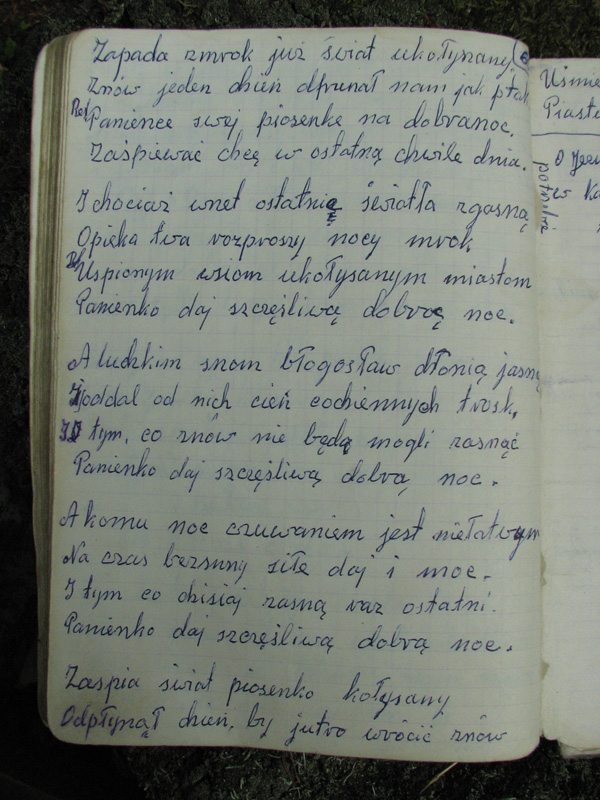 Zapada zmrok już świat ukołysany
Znów jeden dzień dfrunął nam jak ptak
Ref Panience swej piosenkę na dobranoc.
Zaśpiewać chcę w ostatną chwilę dnia.
I chociaż wnet ostatnie światła zgasną
Opieka twa rozproszy nocy mrok
Ref Uśpionym wsiom ukołysanym miastom
Panienko daj szczęśliwą dobrą noc.
A ludzkim snom błogosław dłonią jasną
I oddal od nich cień codziennych trosk,
I tym, co znów nie będą mogli zasnąć
Panienko daj szczęśliwą dobrą noc.
A komu noc czuwaniem jest niełatwym
Na czas bezsenny siłę daj i moc.
I tym co dzisiaj zasną raz ostatni.
Panienko daj szczęśliwą dobrą noc.
Zaspia świat piosenko kołysany
Odpłynął dzień, by jutro wrócić znów
Uśmie
Piastu
O Jezu
w Ka